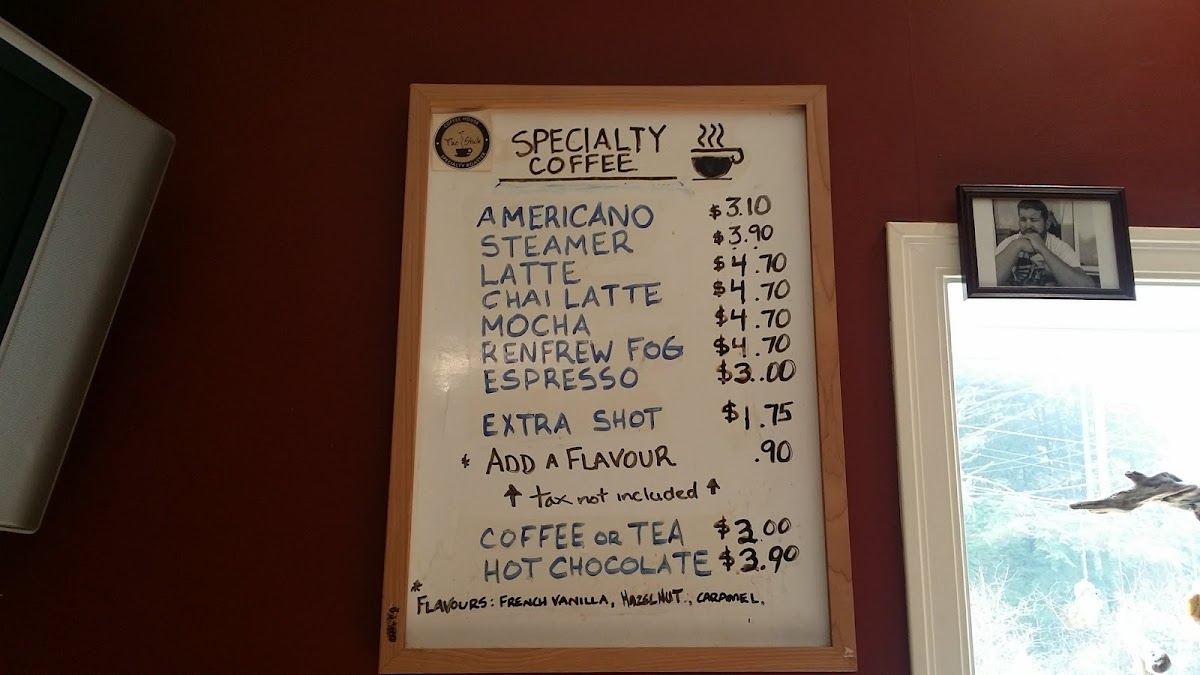 COFFEE HOUSE
SPECIALTY ROASTER
SPECIALTY
COFFEE
AMERICANO $3.10
STEAMER $3.90
LATTE $4.70
CHAI LATTE $4.70
MOCHA $4.70
RENFREW FOG $4.70
ESPRESSO $3.00
EXTRA SHOT $1.75
* ADD A FLAVOUR .90
↑ tax not included ↑
COFFEE OR TEA $3.00
HOT CHOCOLATE $3.90
* FLAVOURS: FRENCH VANILLA, HAZELNUT, CARAMEL,